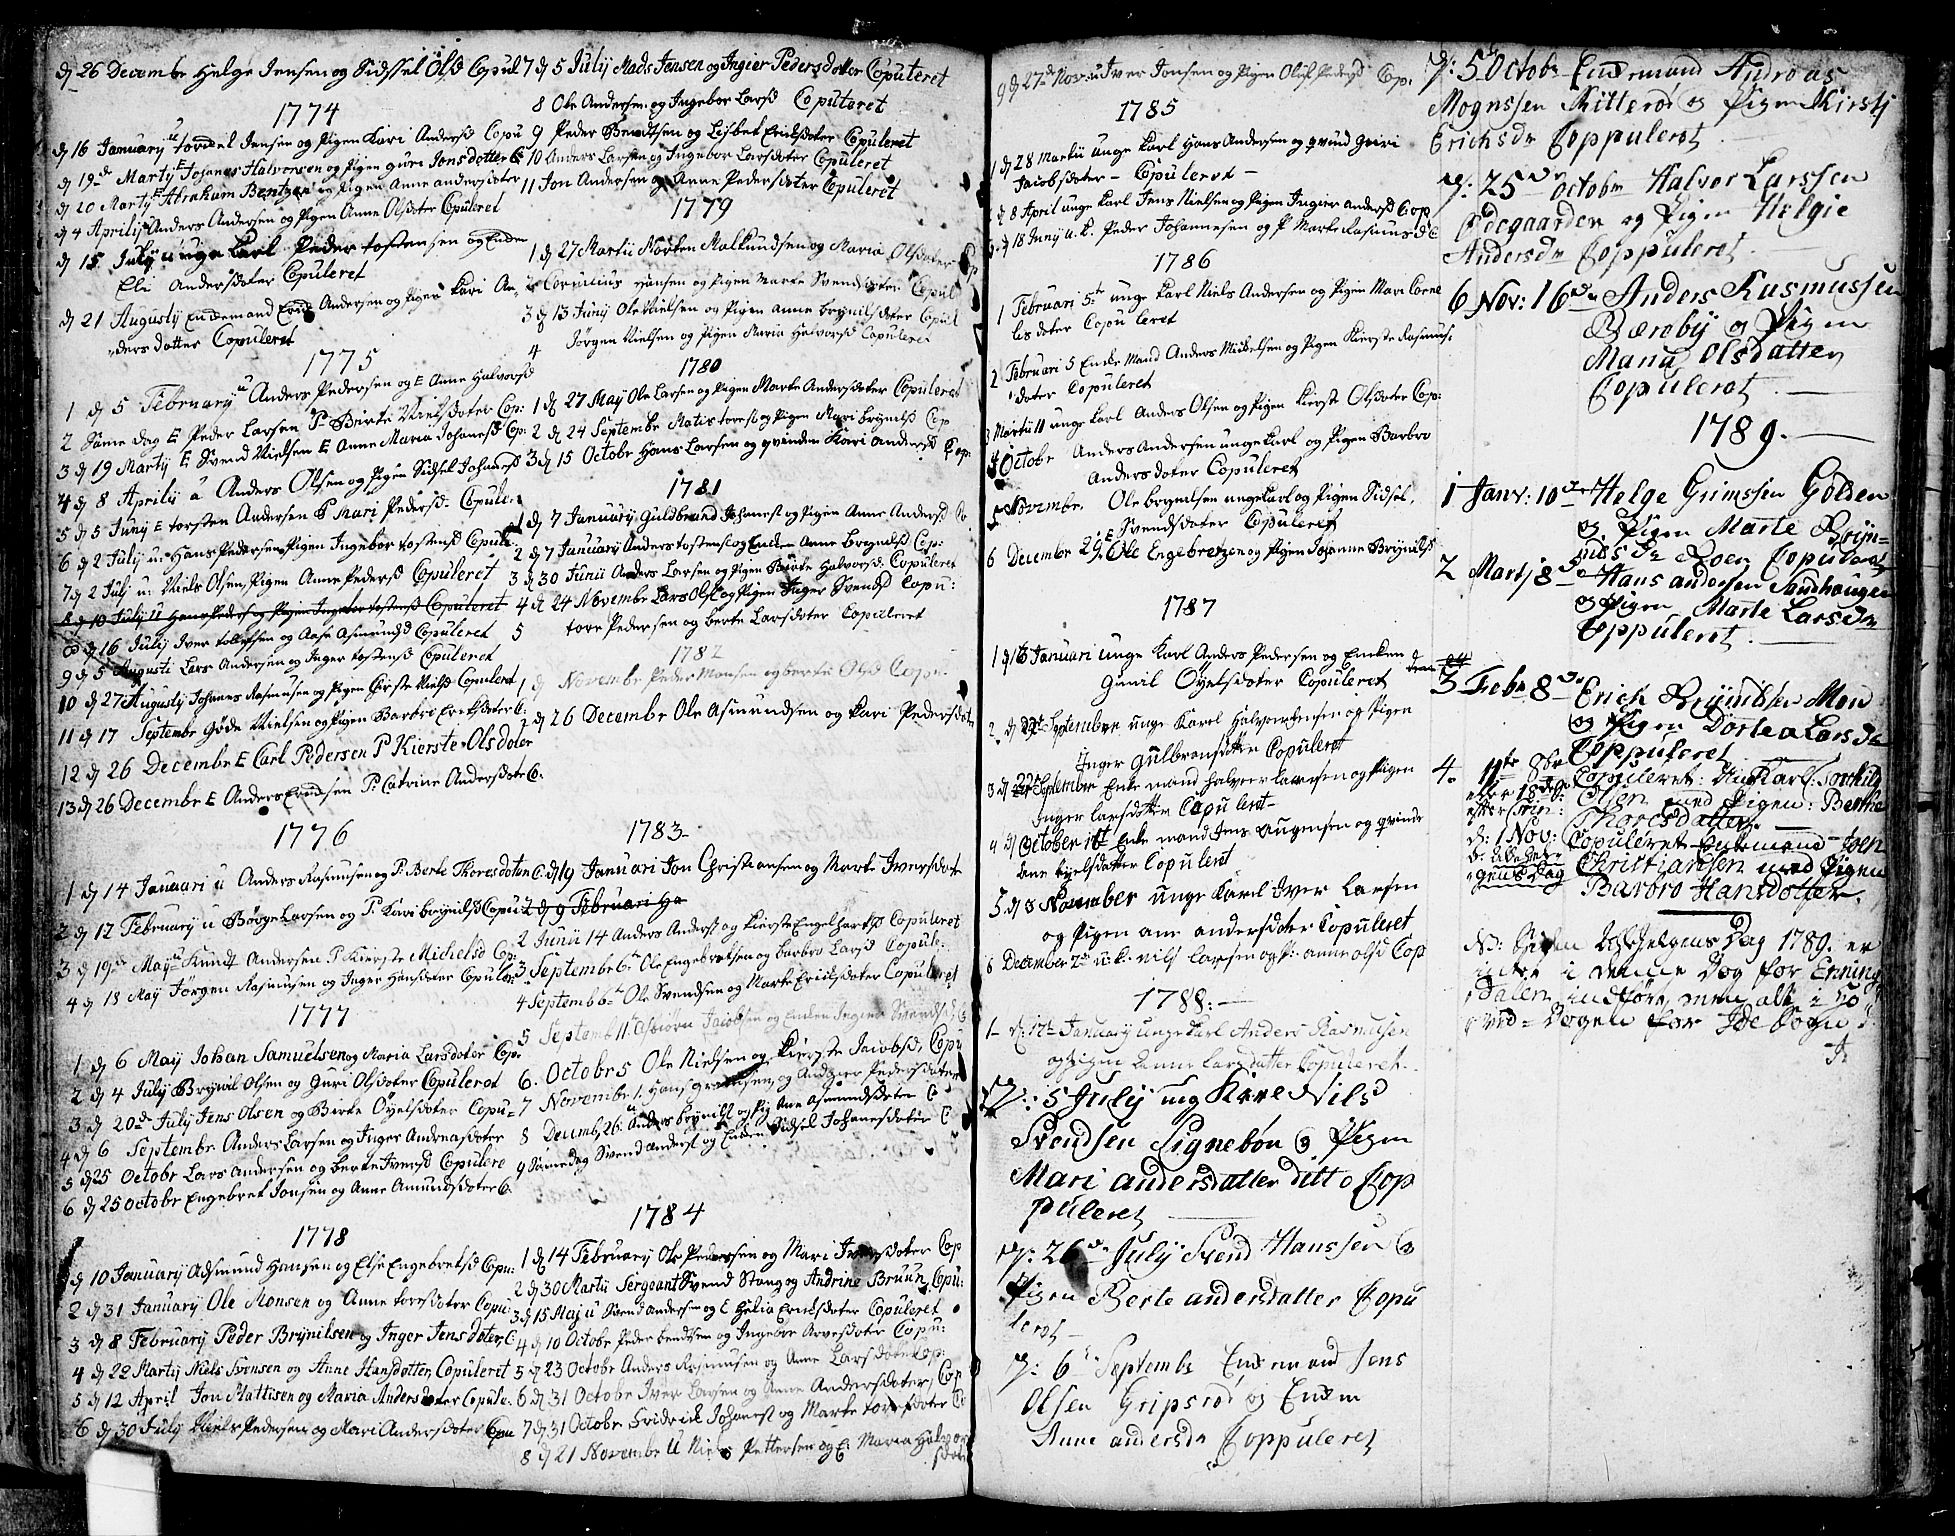 dj 26 Decembr Helge Jensen og Sidssel Olsd Copul
1774
dj 16 January u tordel Jensen og Pigen Kari Andersd Copu
dj 19de Marty E Johanes Halvorsen og Pigen guri Jonsdotter C
dj 20 Marty E Abraham Bentzen og Pigen Anne andersdoter
dj 4 Aprilij Anders Andersen og Pigen Anne Olsdoter Copuleret
dj 15 July u unge Karl Peder tostensen og Enken
Eli Andersdoter Copuleret
dj 21 Augusty Enckemand Erick Andersen og Pigen Kari An-
dersdotter Copuleret
1775
1 dj 5 February u Anders Pedersen og E Anne Halvorsd
2 Same dag E Peder Larsen P Birte Nielsdoter Cop:
3 dj 19 Marty E Svend Nielsen E Anne Maria Johanesd Cop:
4 dj 8 Aprily u Anders Olsen og Pigen Sidsel Johanesd
5 dj 5 Juny E torsten Andersen P Mari Pedersd Copule:
6 dj 2 July u: Hans Pedersen Pigen Ingebor tostensd Copule
7 dj 2 July u: Niels Olsen, Pigen Anne Pedersd Copuleret
8 dj 10 July u Hans Peders og Pigen Ingebor tostensd Copuleret
8 dj 16 July Iver tollefsen og Aase Asmundsd Copuleret
9 dj 5 Augusti Lars Andersen og Inger tostensd Copuleret
10 dj 27 Augusty Johanes Rasmusen og Pigen Cirste Nielsd Copuleret
11 dj 17 Septembr Gøde Nielsen og Pigen Barbro Ericksdoter C.
12 dj 26 Decembr E Carl Pedersen P Kierste Olsdoter
13 dj 26 Decembr E Anders Ericksen P: Catrine Andersdoter Co.
1776
1 dj 14 Januari u Anders Rasmusen og P. Berte Thoresdoter C.
2 dj 12 February u Børge Larsen og P. Kari brynilsd Copu
3 dj 19de May u Knudt Andersen P Kierste Michelsd Cop:
4 dj 18 May Jørgen Rasmusen og Inger Hansdoter Copuler
1777
1 dj 6 May Johan Samuelsen og Maria Larsdoter Cop.
2 dj 4 July Brywil Olsen og Guri Olsdoter Copuleret
3 dj 20de July Jens Olsen og Birte Øyelsdoter Copu=
4 dj 6 Septembr Anders Larsen og Inger Andreasdoter
5 dj 25 Octobr Lars Andersen og berte Iversd Copulere
6 dj 25 Octobr Engebret Jonsen og Anne Amundsdoter C.
1778
dj 10 January Adsmund Hansen og Else Engebretsd Copu:
2 dj 31 January Ole Monsen og Anne toresdoter Copu:
3 dj 8 February Peder Brynilsen og Inger Jensdoter, C.
4 dj 22 Marty Niels Svensen og Anne Hansdotter, Copuleret
5 dj 12 April Jon Mattisen og Maria Andersdoter Copule.
6 dj 30 July Niels Pedersen og Mari Andersdoter Copu
7 dj 5 July Mads Jensen og Ingier Pedersdotter Copuleret
8 Ole Andersen og Ingebor Larsd Copuleret
9 Peder Bendtsen og Lisbet Ericksdoter Copuleret
10 Anders Larsen og Ingebor Larsdoter Copuleret
11 Jon Andersen og Anne Pedersdoter Copuleret
1779
1 dj 27 Martii Morten Malkundsen og Maria Olsdoter Cop
2 Cornelius Hansen og Pigen Marte Svendsdoter Copul
3 dj 13 Juny Ole Nielsen og Pigen anne brynilsdoter Copul
4 Jørgen Nielsen og Pigen Maria Halvorsd Copuleret
1780
1 dj 27 May Ole Larsen og Pigen Marte Andersdoter Copuleret
2 dj 24 Septembr Matis torest og Pigen Mari brynilsd Cop
3 dj 15 Octobr Hans Larsen og qvinden Kari Andersd Cop.
1781
1 dj 7 January Guldbrand Johanest og Pigen Anne Andersd Co.
2 dj 7 January Anders tostenst og Enken Anne brynilsd Cop:
3 dj 30 Junii Anders Larsen og Pigen Birte Halvorsd Copuleret
4 dj 24 Novembr Lars Olst og Pigen Inger Svendsd Copu:
5 tore Pedersen og berte Larsdoter Copuleret
1782
1 dj Novembr Peder Monsen og berte Olsd Copu.
2 dj 26 Decembr Ole Asmundsen og Kari Pedersdoter
1783
dj 19 Januari Jon Christiansen og Marte Iversdoter
2 dj 9 Februari Ha
2 Junii 14 Anders Anderst og Kierste Engelhartsd Copuleret
3. Septembr 6te Ole Engebretsen og barbro Larsd Copule:
4 Septemb 6te Ole Svendsen og Marte Ericksdoter Copuleret
5 Septemb 11te Asbiørn Jacobsen og Enken Inger Svendsd C
6. Octobr 5 Ole Nielsen og Kierste Jacobsd, Copu
7 Novembr 1. Hans grimsen, og Andrier Pedersdoter
8 Decemb, 26. u Anders brynilst og Pig Ane Asmundsdoter C
9 Same dag Svend Anderst og Enken Sidsel Johanesdoter C
1784
1 dj 14 February Ole Pedersen og Mari Iversdoter Cop
2 dj 30 Martii Sergeant Svend Stang og Andrine Bruun, Copu:
3 dj 15 Maj u Svend andersen og E Helia Ericksdoter Copuleret
4 dj 10 Octobr Peder bendtsen og Ingebor Arvesdoter Copu:
5 dj 23 Octobr Anders Rasmusen og Anne Larsdoter Cop:
6 dj 31 Octobr Iver Larsen og Anne Andersdoter, Cop
7 dj 31 Octobr Fridrick Johanest og Marte torersdoter Co
8 dj 21 Novembr U Niels Pettersen og E. Maria Halvor
sdoter
9 dj 27de Nov: u Iver Jonsen og Pigen Oluf Pedersd Cop.
1785
1 dj 28 Martii unge Karl Hans Andersen og qvind Guri
Jacobsdoter - Copuleret -
dj 8 April unge Karl Jens Nielsen og Pigen Ingier Andersd Cop
3. dj 18 Juny u. K. Peder Johannesen og P Marte Rasmusd C
1786
1 Februari 5te unge Karl Niels Andersen og Pigen Mari Corne
lisdoter Copuleret
2 Februari 5 Enke Mand Anders Mickelsen og Pigen Kierste Rasmus:
doter Copuleret
3 Martii 11 unge Karl Anders Olsen og Pigen Kierste Olsdoter Cop:
4 Octobr Anders Andersen unge Karl og Pigen Barbro
Andersdoter Copuleret
5 Novembr. Ole brynilsen unge Karl og Pigen Sidsel,
Svendsdoter Copuleret
6 Decembr 29: E Ole Engebretzen og Pigen Johanne Brynilsd
1787
1 dj 16 Januari unge Karl Anders Pedersen og Encken
Gunil Øyelsdoter Copuleret
2 dj 22de Septembr unge Karel Halvor Jensen og Pigen
Inger Gulbransdatter Copuleret
3 dj 22de Septembr Enke mand halvor larsen og Pigen
Inger larsdatter Copuleret
4 dj October 18de Enke mand Jens Augensen og qvinde
lene Eyelsdatter Copuleret
5 dj 8 November unge Karl Iver Larsen
og Pigen ane andersdoter Copuleret
6 December 7de u:k: nils larsen og P: anne olsd Cop
1788.
1- d: 17de January unge karl Anders Rasmusen
og Pigen Lenne Larsdatter Copuleret.
D: 5 July ung Karl Nils
Svendsen Signebøn og Pigen
Mari andersdatter ditto Cop
puleret
D: 26de July Svend Hanssen og
Pigen Berte andersdatter Copu
leret
D: 6te Septembr Enckemand Jens
Olsen Gripsrød og Encken
Anne andersdr Coppuleret
D: 5te Octobr Enckemand Andreas
Mognssen Kitterød og Pigen Kirstj
Erichsdr Coppuleret
D: 25de Octobr Halvor Larssen
Ødegaarden og Pigen Helgie
Andersdr Coppuleret
6 Nov: 16de Anders Rasmussen
Bæroby og Pigen
Maria Olsdatter
Copuleret
1789.
1 Janv: 10de Helge Grimssen Golden
og Pigen Marte Bryn=
nilsdr Roen Copuleret
2 Martj 8de Hans andersen Sandhaugen
og Pigen Marte Larsdr
Coppuleret
3 Febr 8de Erich Brynildsen Moen
og Pigen Dortea Larsdr
Coppuleret
4. 11te 8br Copuleret: Ung Karl: Torkild
eller 18de p: Olsen med Pigen: Berthe
efter Trin: Thoresdatter.
d: 1 Nov: Copuleret Enkemand Joen
d: Alle Hel= Christiansen med Pigen
gens Dag Barbro Hansdotter.
NB: Siden Allehelgens Dag 1789. er
intet i denne Bog for Enning=
dalen indført, men alt i Ho=
ved=Bogen for Idde Sogn